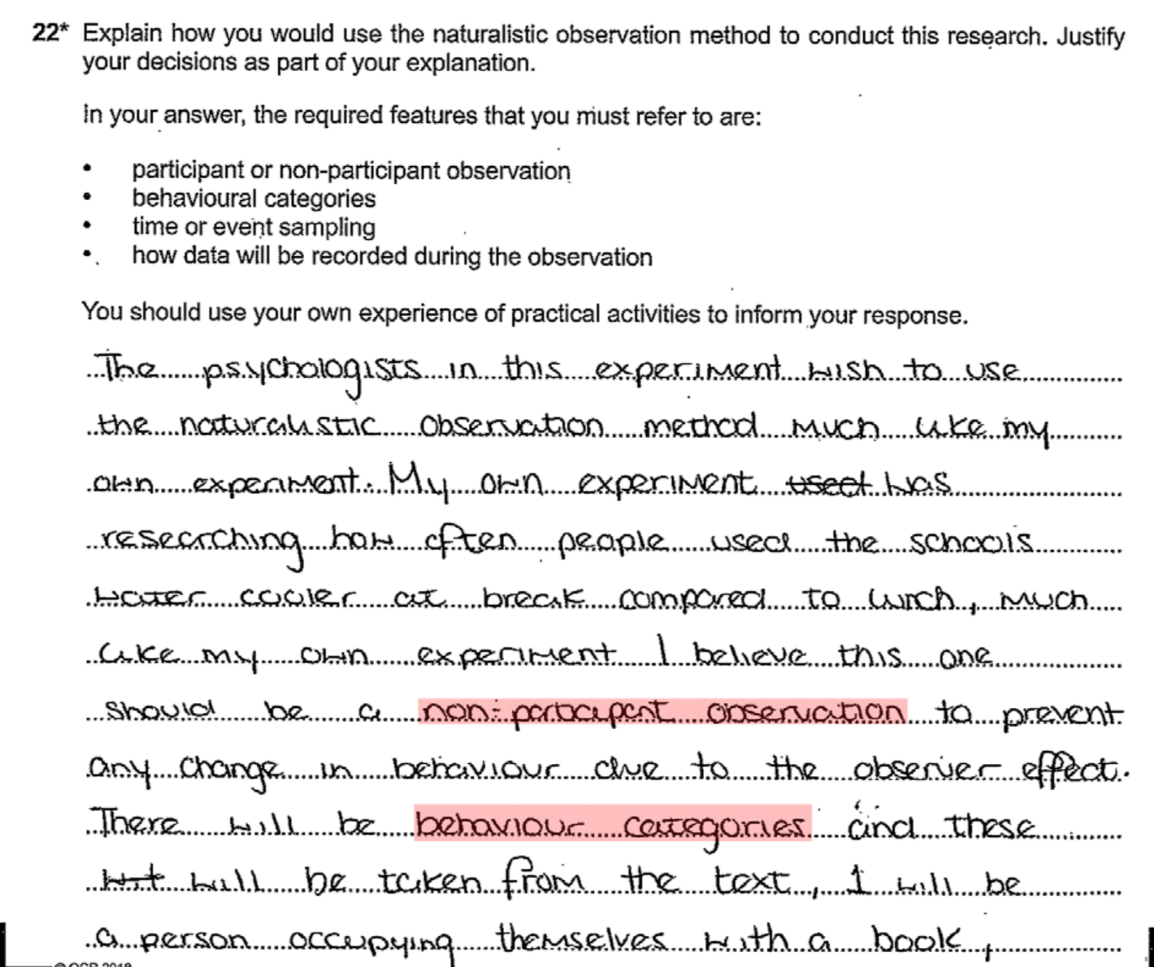 22* Explain how you would use the naturalistic observation method to conduct this research. Justify
your decisions as part of your explanation.
In your answer, the required features that you must refer to are:
• participant or non-participant observation
• behavioural categories
• time or event sampling
• how data will be recorded during the observation
You should use your own experience of practical activities to inform your response.
The psychologists in this experiment wish to use
the naturalistic observation method much like my
own experiment. My own experiment used was
researching how often people used the schools
water cooler at break compared to lunch, much
like my own experiment I believe this one
should be a non-participant observation to prevent
any change in behaviour due to the observer effect.
There will be behaviour categories and these
will be taken from the text, 1 will be
a person occupying themselves with a book,